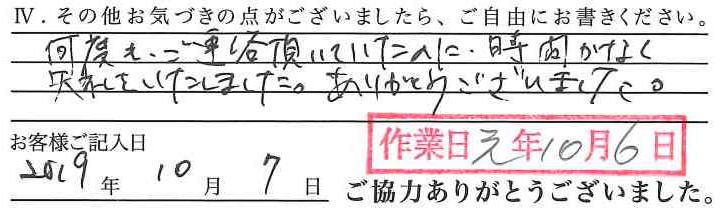 Ⅳ．その他お気づきの点がございましたら、ご自由にお書きください。
何度も、ご連絡頂いていたのに、時間がなく
失礼をいたしました。ありがとうございました。
お客様ご記入日
作業日 元年10月6日
2019年 10月 7日
ご協力ありがとうございました。